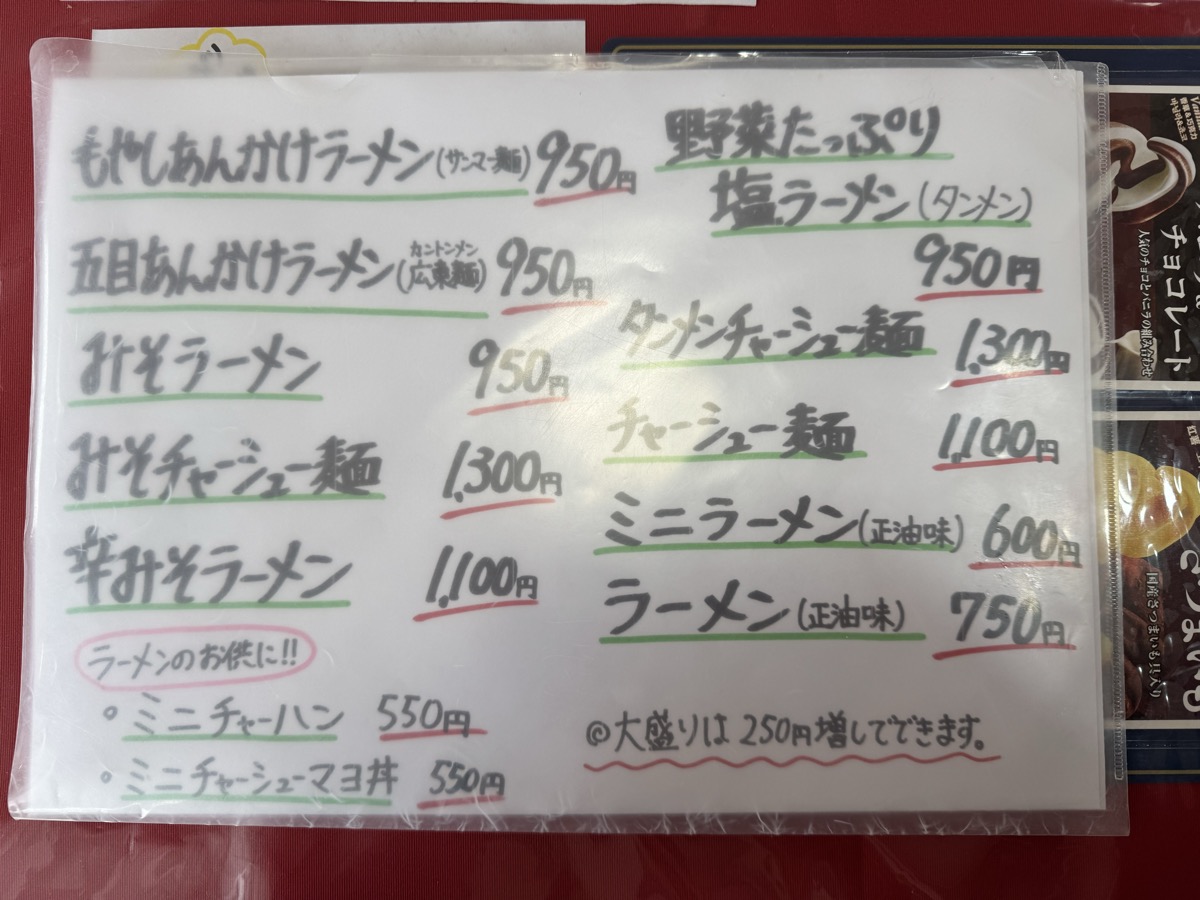 もやしあんかけラーメン(サンマー麺) 950円
五目あんかけラーメン(広東麺) 950円
カントンメン
みそラーメン 950円
みそチャーシュー麺 1,300円
辛みそラーメン 1,100円
ラーメンのお供に!!
。ミニチャーハン 550円
。ミニチャーシューマヨ丼 550円
野菜たっぷり
塩ラーメン(タンメン)
950円
タンメンチャーシュー麺 1,300円
チャーシュー麺 1,100円
ミニラーメン(正油味) 600円
ラーメン(正油味) 750円
◎大盛りは250円増しでできます。
チョコレート
人気のチョコとバニラの組み合わせ
さつまいも
国産さつまいも具入り